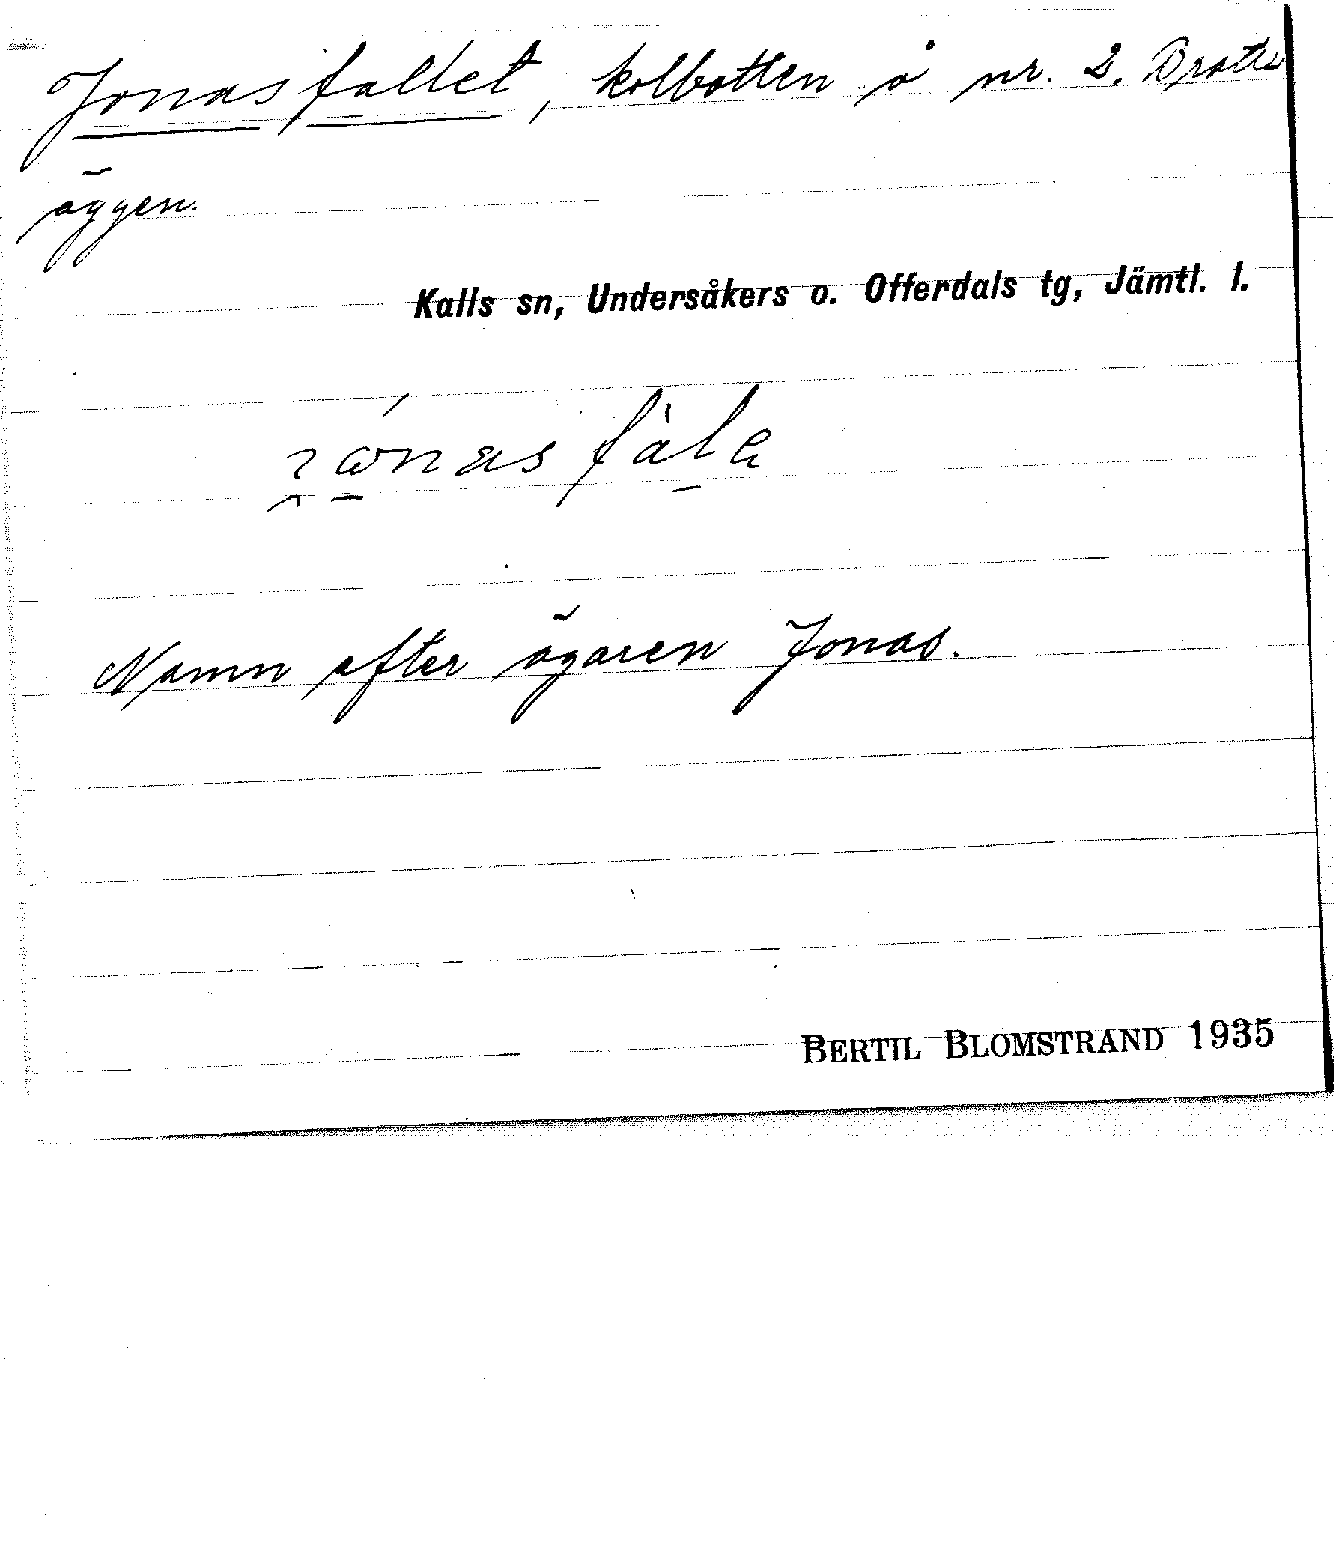 Jonasfallet, kolbotten å nr. 2. Bratt-
äggen.
Kalls sn, Undersåkers o. Offerdals tg, Jämtl. l.
Namn efter ägaren Jonas.
BERTIL BLOMSTRAND 1935